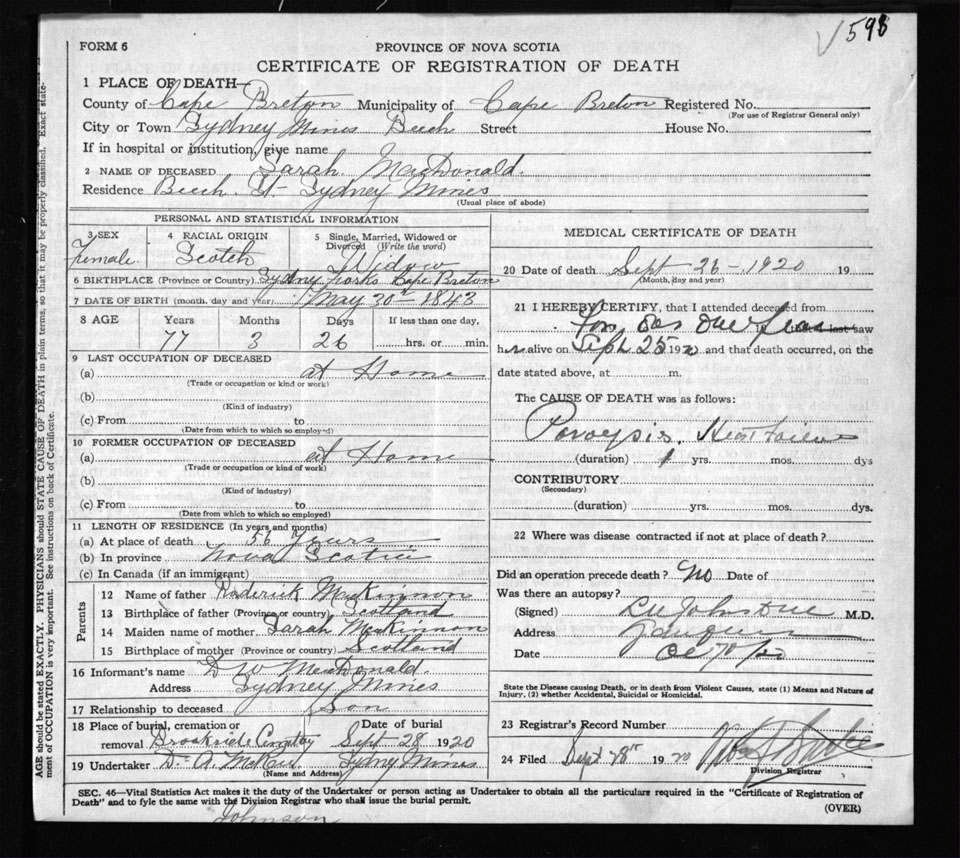 598
FORM 6
PROVINCE OF NOVA SCOTIA
CERTIFICATE OF REGISTRATION OF DEATH
1 PLACE OF DEATH
County of Cape Breton Municipality of Cape Breton Registered No.
(For use of Registrar General only)
City or Town Sydney Mines Beech Street House No.
If in hospital or institution, give name
2 NAME OF DECEASED Sarah MacDonald.
Residence Beech St- Sydney Mines
(Usual place of abode)
PERSONAL AND STATISTICAL INFORMATION
3 SEX
Female
4 RACIAL ORIGIN
Scotch
5 Single, Married, Widowed or Divorced (Write the word)
Widow
6 BIRTHPLACE (Province or Country) Sydney Forks Cape Breton
7 DATE OF BIRTH (month, day and year) May 30th 1843
8 AGE Years Months Days If less than one day,
77 3 26 hrs. or min.
9 LAST OCCUPATION OF DECEASED
(a) at Home
(Trade or occupation or kind or work)
(b)
(Kind of industry)
(c) From to
(Date from which to which so employed)
10 FORMER OCCUPATION OF DECEASED
(a) at Home
(Trade or occupation or kind of work)
(b)
(Kind of industry)
(c) From to
(Date from which to which so employed)
11 LENGTH OF RESIDENCE (In years and months)
(a) At place of death 56 Years
(b) In province Nova Scotia
(c) In Canada (if an immigrant)
Parents
12 Name of father Roderick MacKinnon
13 Birthplace of father (Province or country) Scotland
14 Maiden name of mother Sarah McKinnon
15 Birthplace of mother (Province or country) Scotland
16 Informant's name D W MacDonald.
Address Sydney Mines
17 Relationship to deceased Son
18 Place of burial, cremation or removal Brookside Cemetery
Date of burial
Sept 28 1920
19 Undertaker D. A. Sydney Mines
(Name and Address)
MEDICAL CERTIFICATE OF DEATH
20 Date of death Sept 26-1920 19
(Month, day and year)
21 I HEREBY CERTIFY, that I attended deceased from
last saw
her alive on Sept 25 1920 and that death occurred, on the
date stated above, at m.
The CAUSE OF DEATH was as follows:
Heart
(duration) 1 yrs. mos. dys
CONTRIBUTORY
(Secondary)
(duration) yrs. mos. dys.
22 Where was disease contracted if not at place of death?
Did an operation precede death? No Date of
Was there an autopsy?
(Signed) M.D.
Address
Date
State the Disease causing Death, or in death from Violent Causes, state (1) Means and Nature of
Injury, (2) whether Accidental, Suicidal or Homicidal.
23 Registrar's Record Number
24 Filed Sept 28th 1920
Division Registrar
SEC. 46—Vital Statistics Act makes it the duty of the Undertaker or person acting as Undertaker to obtain all the particulars required in the "Certificate of Registration of
Death" and to fyle the same with the Division Registrar who shall issue the burial permit.
(OVER)
Johnson
AGE should be stated EXACTLY. PHYSICIANS should STATE CAUSE OF DEATH in plain terms, so that it may be properly classified. Exact state-
ment of OCCUPATION is very important. See instructions on back of Certificate.